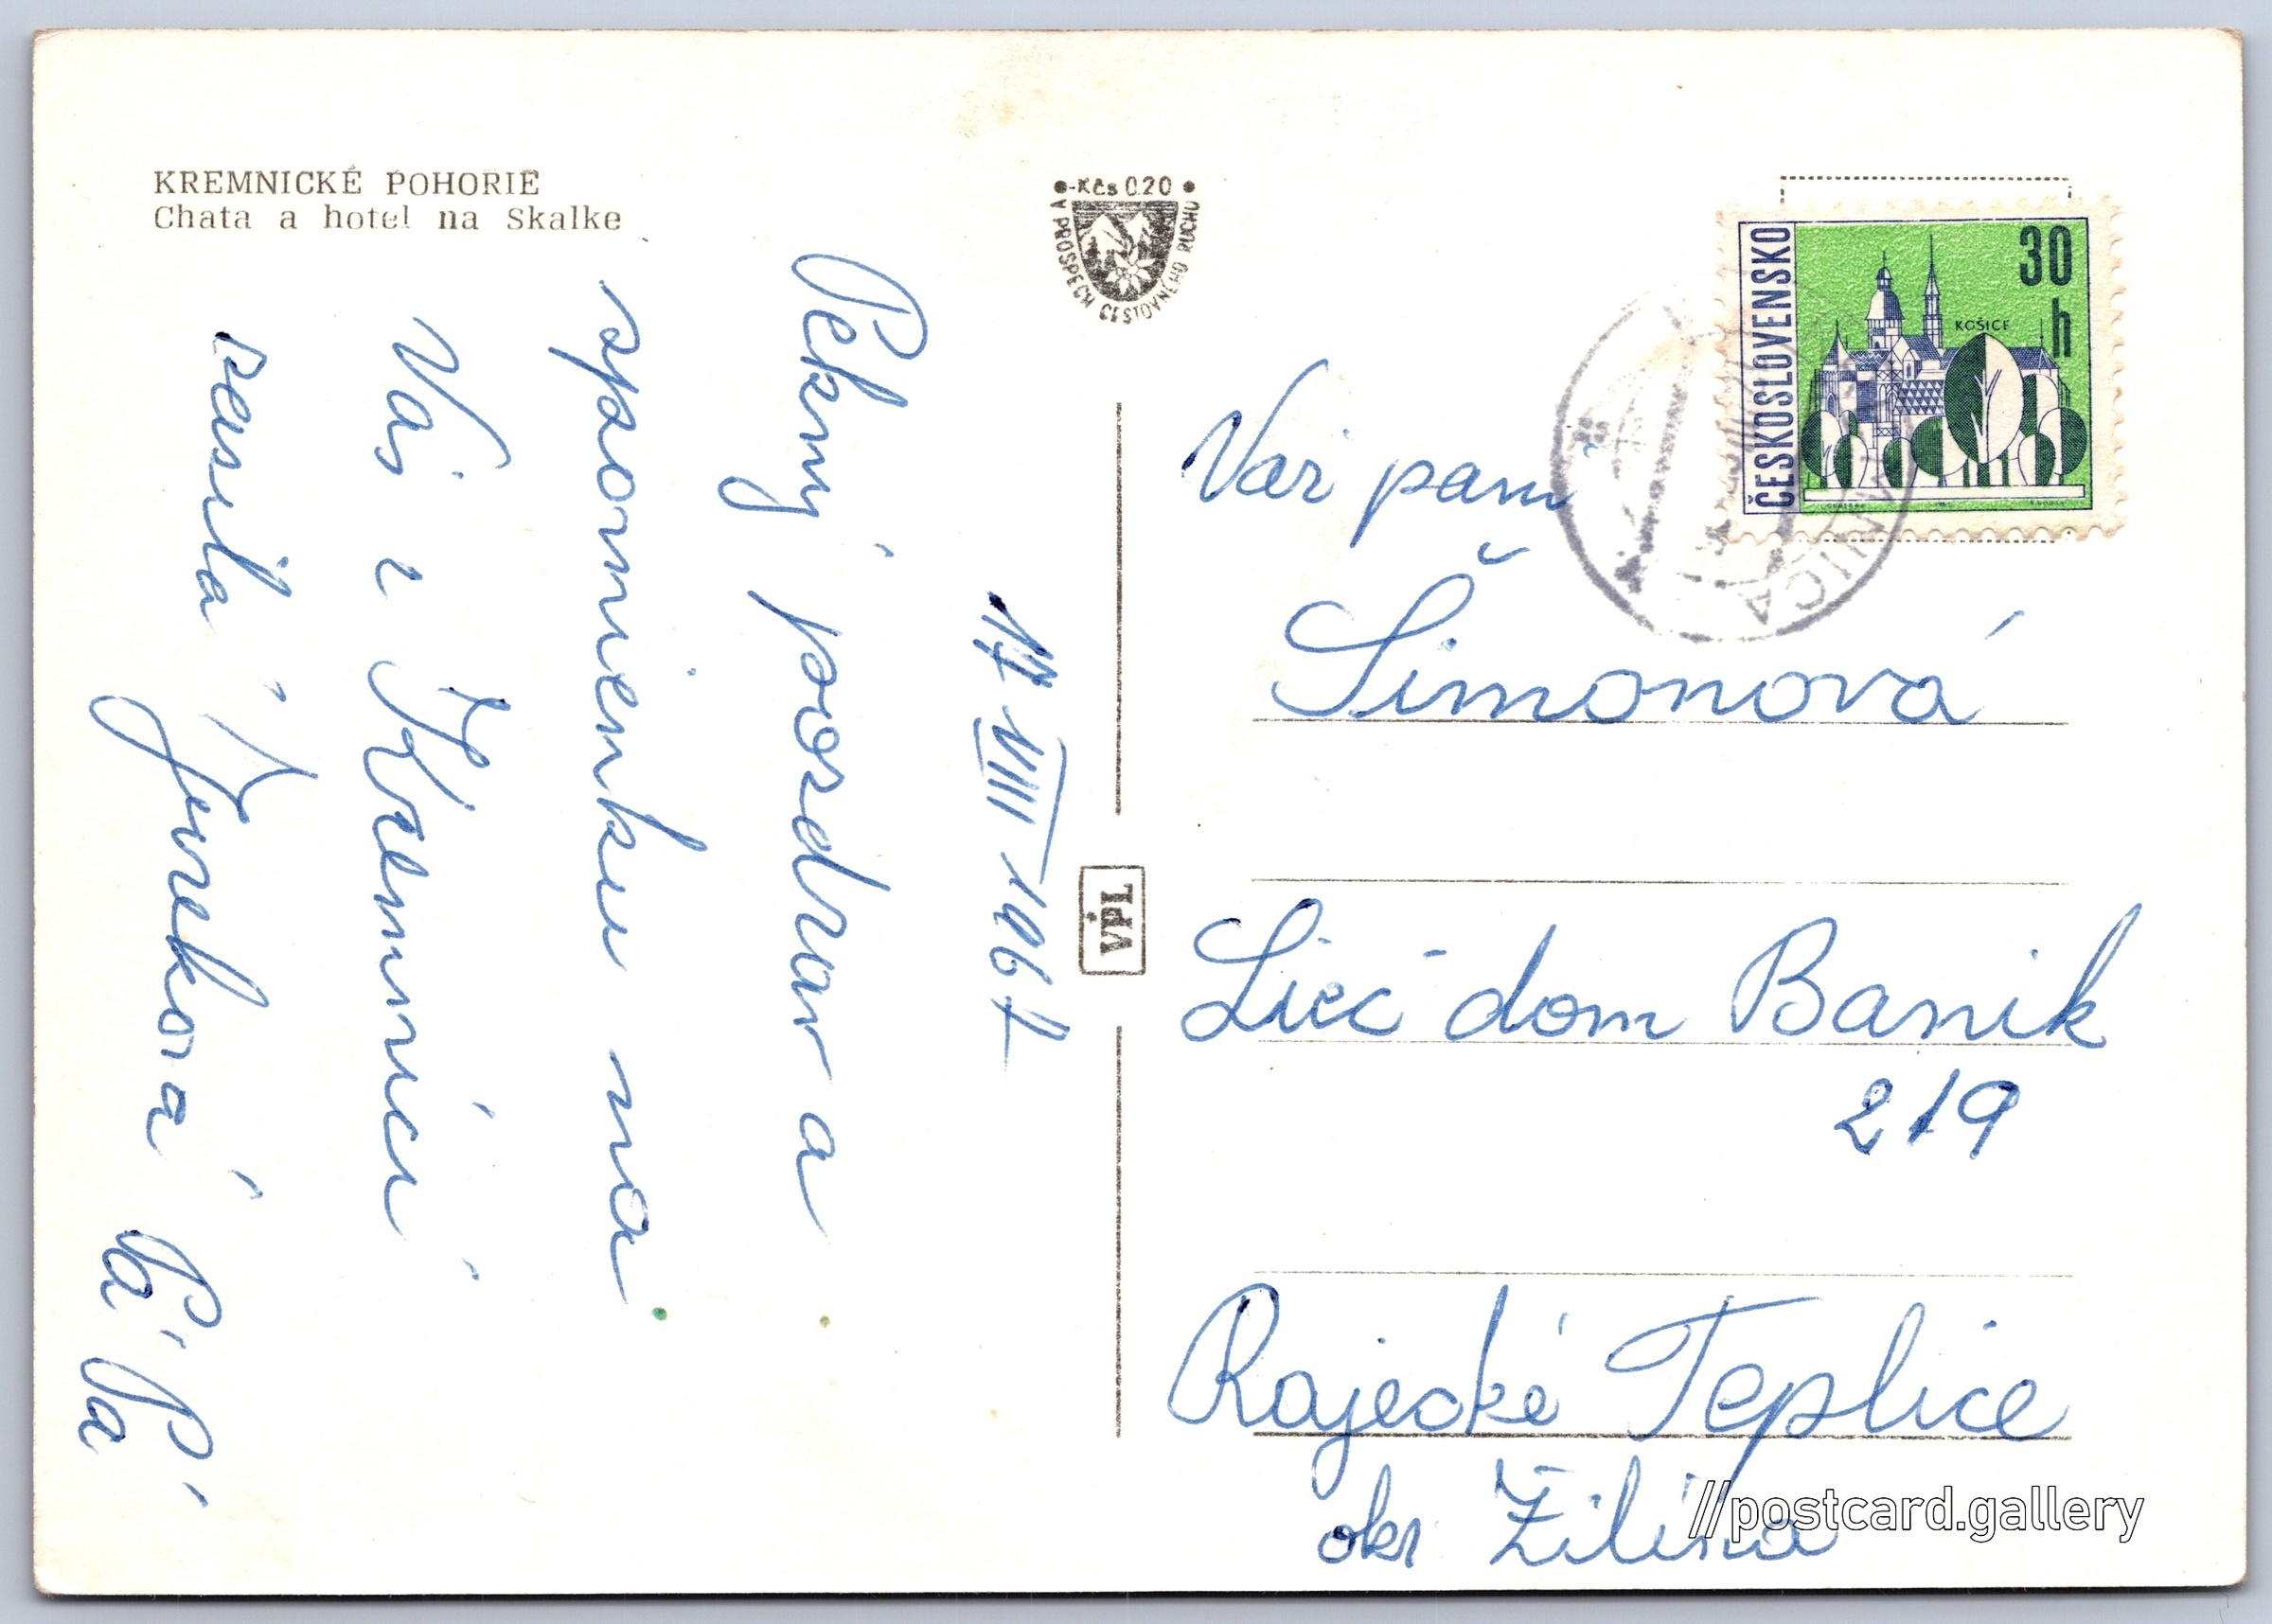 KREMNICKÉ POHORIE
Chata a hotel na Skalke
Kčs 0.20
V PROSPECH CESTOVNÉHO RUCHU
ČESKOSLOVENSKO
30
h
KOŠICE
17 VIII 1967
Pekný pozdrav a
spomienku na
Vás z Kremnici
zasiela Jureková Pá Pá
VPL
Važ pani
Šimonová
Lieč dom Baník
219
Rajecké Teplice
okr Žilina
//postcard.gallery